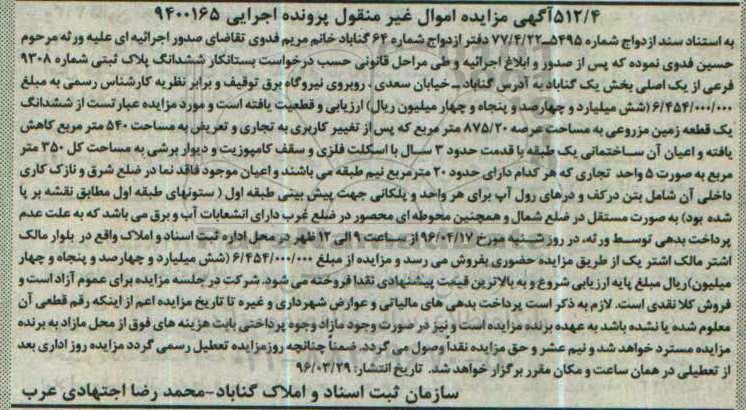 ۵۱۲/۴آگهی مزایده اموال غیر منقول پرونده اجرایی ۹۴۰۰۱۶۵
به استناد سند ازدواج شماره ۵۴۹۵ـ ۷۷/۴/۲۲ دفتر ازدواج شماره ۶۴ گناباد خانم مریم فدوی تقاضای صدور اجرائیه ای علیه ورثه مرحوم
حسین فدوی نموده که پس از صدور و ابلاغ اجرائیه و طی مراحل قانونی حسب درخواست بستانکار ششدانگ پلاک ثبتی شماره ۹۳۰۸
فرعی از یک اصلی بخش یک گناباد به آدرس گناباد ـ خیابان سعدی ، روبروی نیروگاه برق توقیف و برابر نظریه کارشناس رسمی به مبلغ
۶/۴۵۴/۰۰۰/۰۰۰ (شش میلیارد و چهارصد و پنجاه و چهار میلیون ریال) ارزیابی و قطعیت یافته است و مورد مزایده عبارتست از ششدانگ
یک قطعه زمین مزروعی به مساحت عرصه ۸۷۵/۲۰ متر مربع که پس از تغییر کاربری به تجاری و تعریض به مساحت ۵۴۰ متر مربع کاهش
یافته و اعیان آن ساختمانی یک طبقه با قدمت حدود ۳ سال با اسکلت فلزی و سقف کامپوزیت و دیوار برشی به مساحت کل ۳۵۰ متر
مربع به صورت ۵ واحد تجاری که هر کدام دارای حدود ۲۰ مترمربع نیم طبقه می باشند و اعیان موجود فاقد نما در ضلع شرق و نازک کاری
داخلی آن شامل بتن درکف و درهای رول آپ برای هر واحد و پلکانی جهت پیش بینی طبقه اول ( ستونهای طبقه اول مطابق نقشه بر پا
شده بود) به صورت مستقل در ضلع شمال و همچنین محوطه ای محصور در ضلع غرب دارای انشعابات آب و برق می باشد که به علت عدم
پرداخت بدهی توسط ورثه، در روز شنبه مورخ ۹۶/۰۴/۱۷ از ساعت ۹ الی ۱۲ ظهر در محل اداره ثبت اسناد و املاک واقع در بلوار مالک
اشتر مالک اشتر یک از طریق مزایده حضوری بفروش می رسد و مزایده از مبلغ ۶/۴۵۴/۰۰۰/۰۰۰ (شش میلیارد و چهارصد و پنجاه و چهار
میلیون)ریال مبلغ پایه ارزیابی شروع و به بالاترین قیمت پیشنهادی نقدا فروخته می شود. شرکت در جلسه مزایده برای عموم آزاد است و
فروش کلا نقدی است. لازم به ذکر است پرداخت بدهی های مالیاتی و عوارض شهرداری و غیره تا تاریخ مزایده اعم از اینکه رقم قطعی آن
معلوم شده یا نشده باشد به عهده برنده مزایده است و نیز در صورت وجود مازاد وجوه پرداختی بابت هزینه های فوق از محل مازاد به برنده
مزایده مسترد خواهد شد و نیم عشر و حق مزایده نقداً وصول می گردد. ضمناً چنانچه روزمزایده تعطیل رسمی گردد مزایده روز اداری بعد
از تعطیلی در همان ساعت و مکان مقرر برگزار خواهد شد. تاریخ انتشار: ۹۶/۰۳/۲۹
سازمان ثبت اسناد و املاک گناباد-محمد رضا اجتهادی عرب